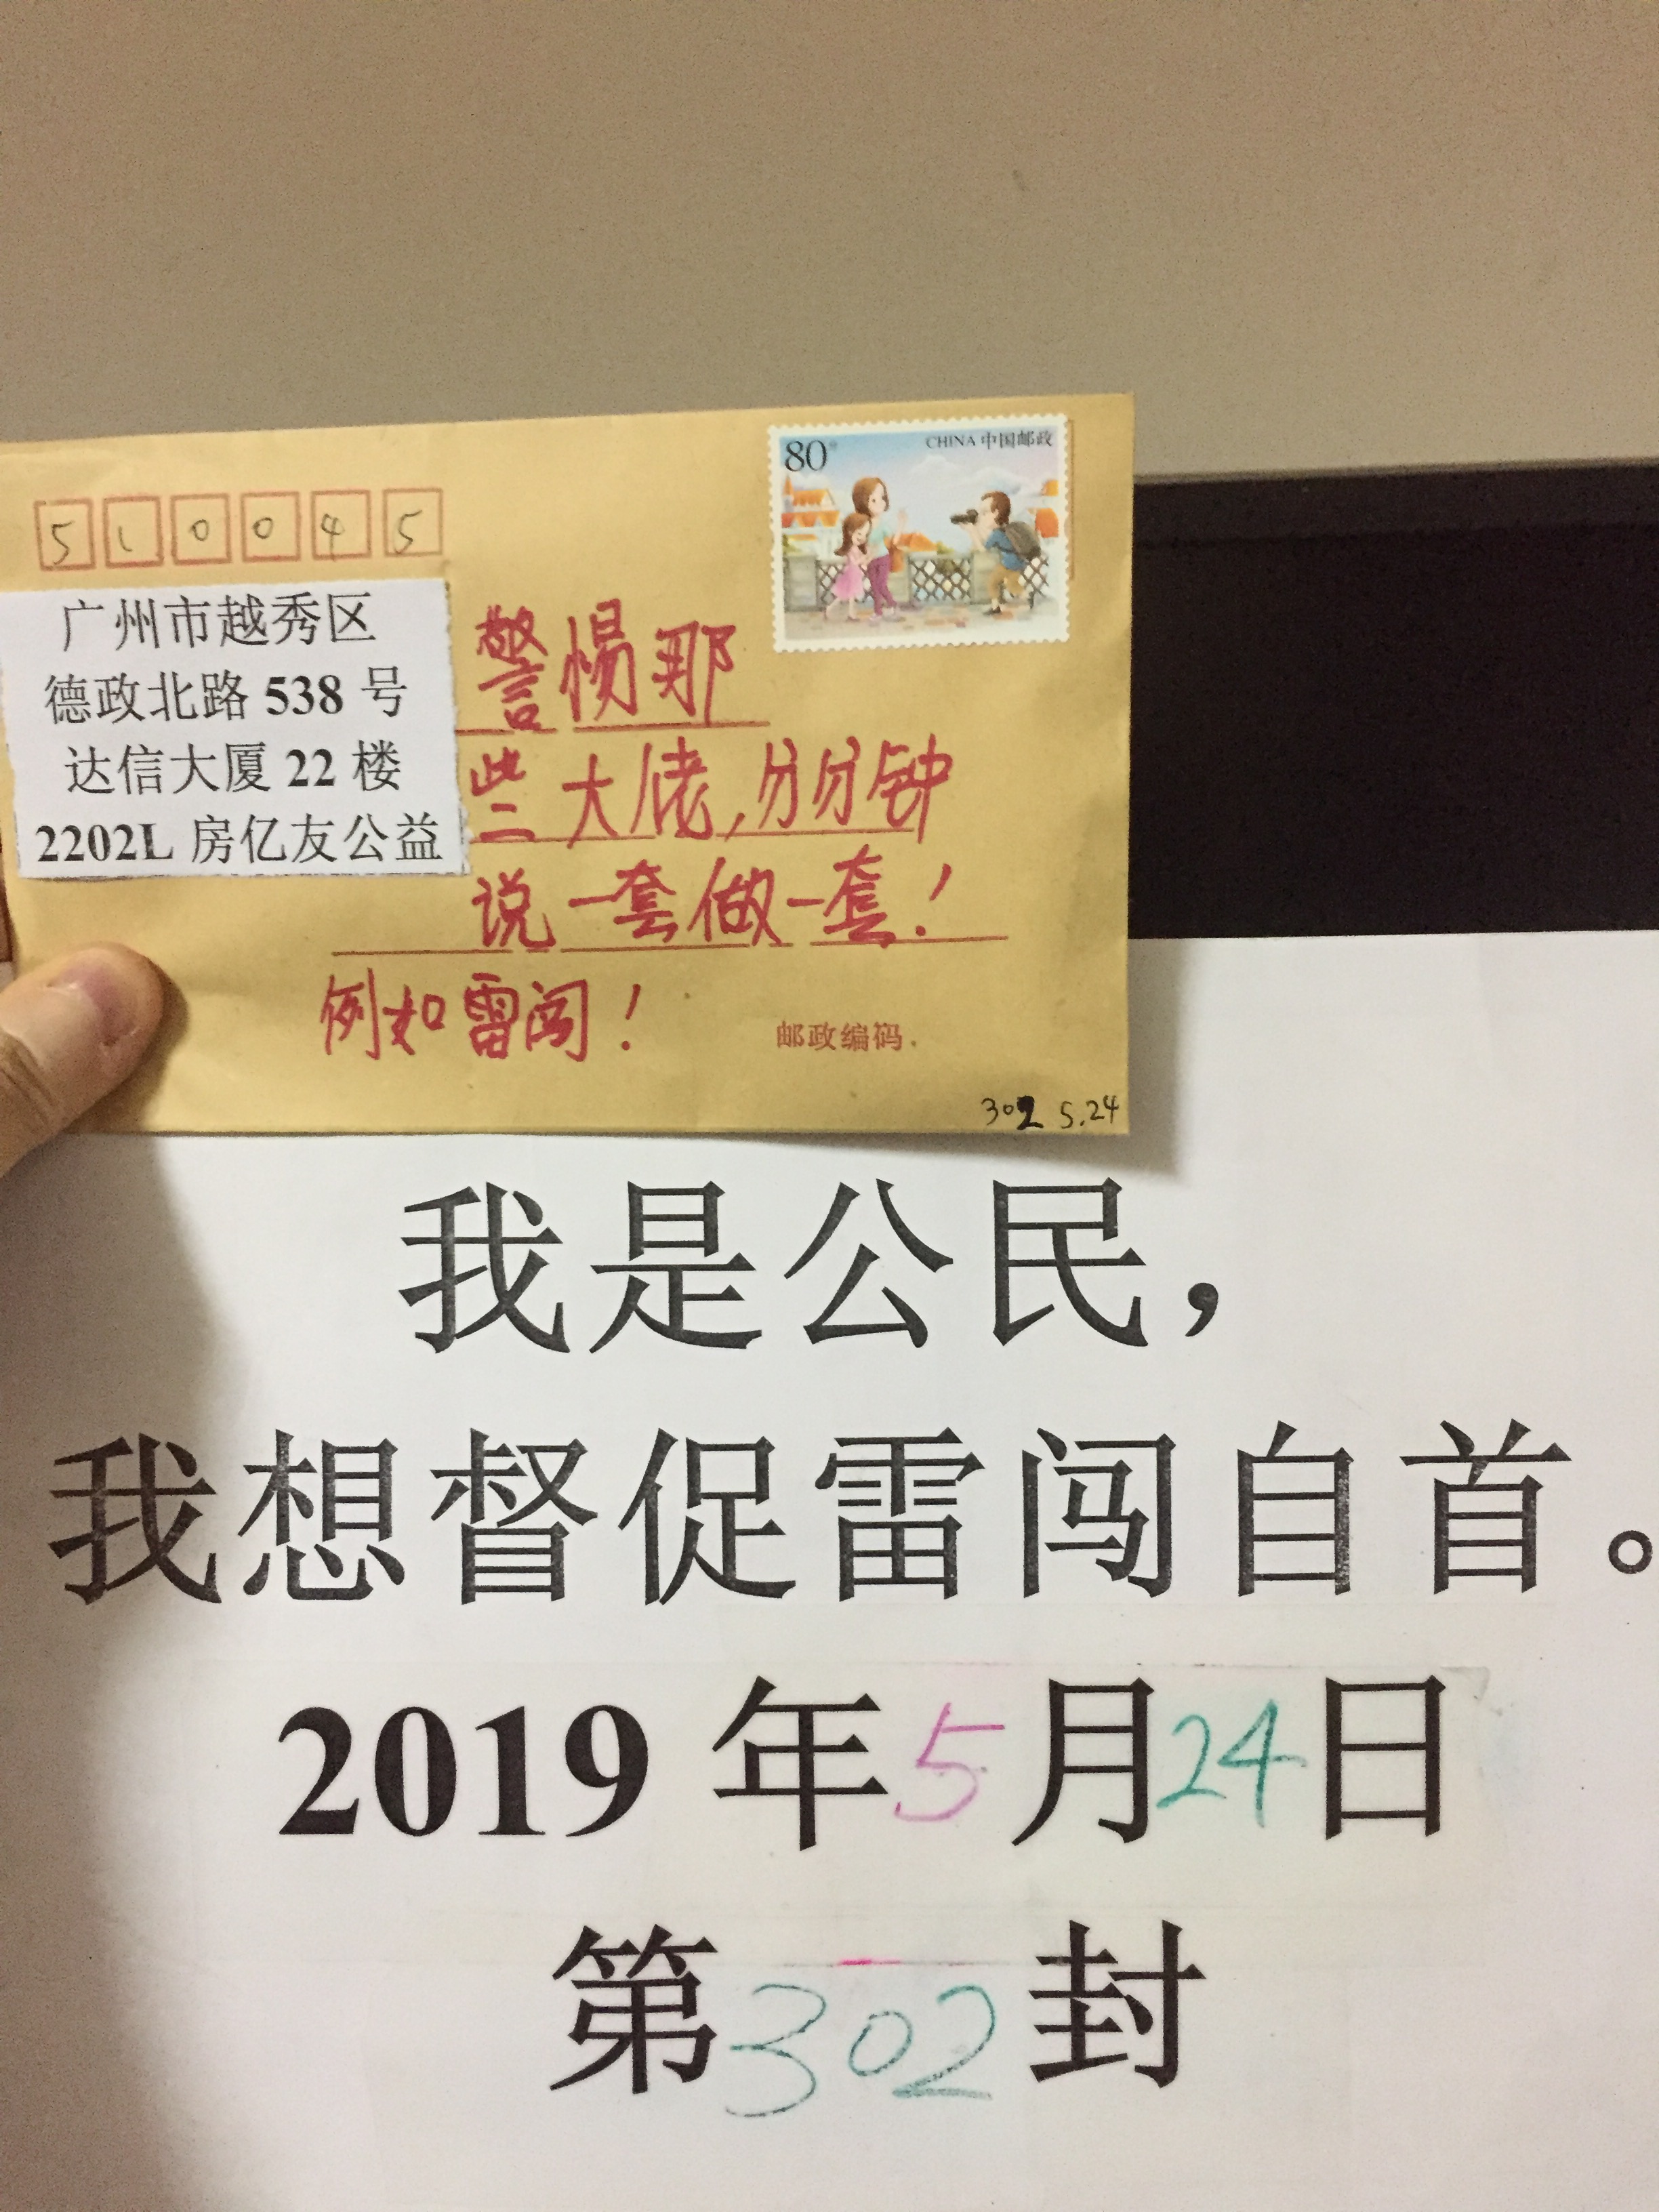 80分
CHINA 中国邮政
510045
广州市越秀区
德政北路 538 号
达信大厦 22 楼
2202L 房亿友公益
警惕那
些大佬,分分钟
说一套做一套!
例如雷闯!
邮政编码
302 5.24
我是公民，
我想督促雷闯自首。
2019 年5月24日
第302封